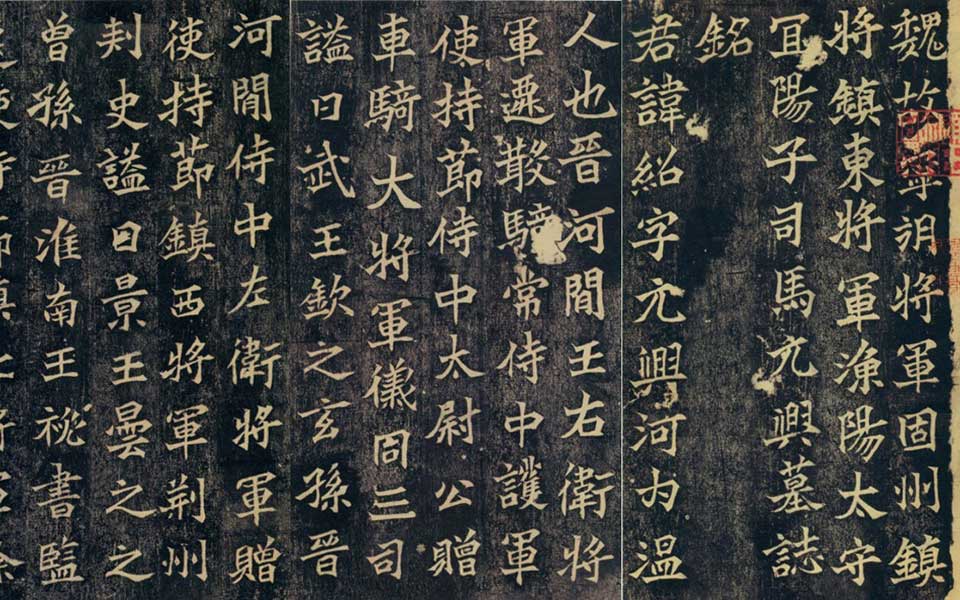 魏故寧朔將軍固州鎮
將鎮東將軍漁陽太守
冝陽子司馬元興墓誌
銘
君諱紹字元興河內溫
人也晉河間王右衛將
軍遷散騎常侍中護軍
使持節侍中太尉公贈
車騎大將軍儀同三司
謚曰武王欽之玄孫晉
河間侍中左衛將軍贈
使持節鎮西將軍荊州
刺史謚曰景王曇之之
曾孫晉淮南王秘書監